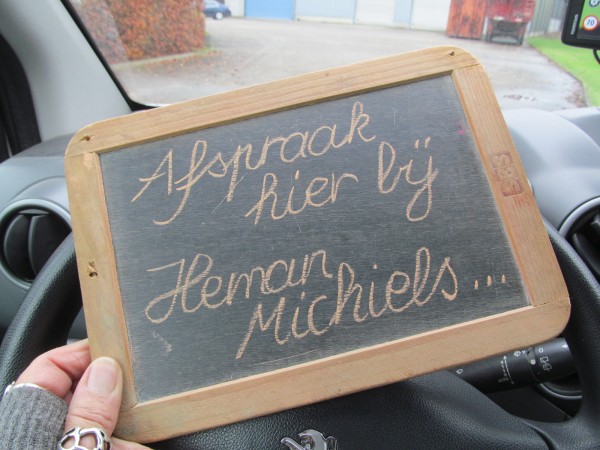 Afspraak
hier bij
Heman
Michiels...
70